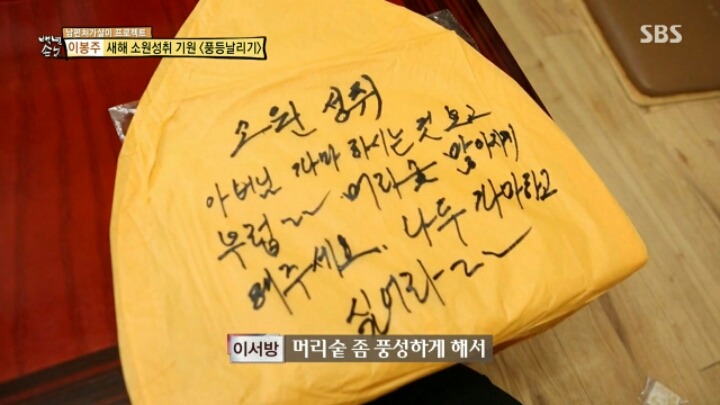 백년손님
남편처가살이 프로젝트
이봉주 새해 소원성취 기원 <풍등날리기>
SBS
소원 성취
아버님 파마 하시는 것 보고
부럽~~ 머리숱 많아지게
해주세요. 나두 파마하고
싶어라~~~
이서방 머리숱 좀 풍성하게 해서